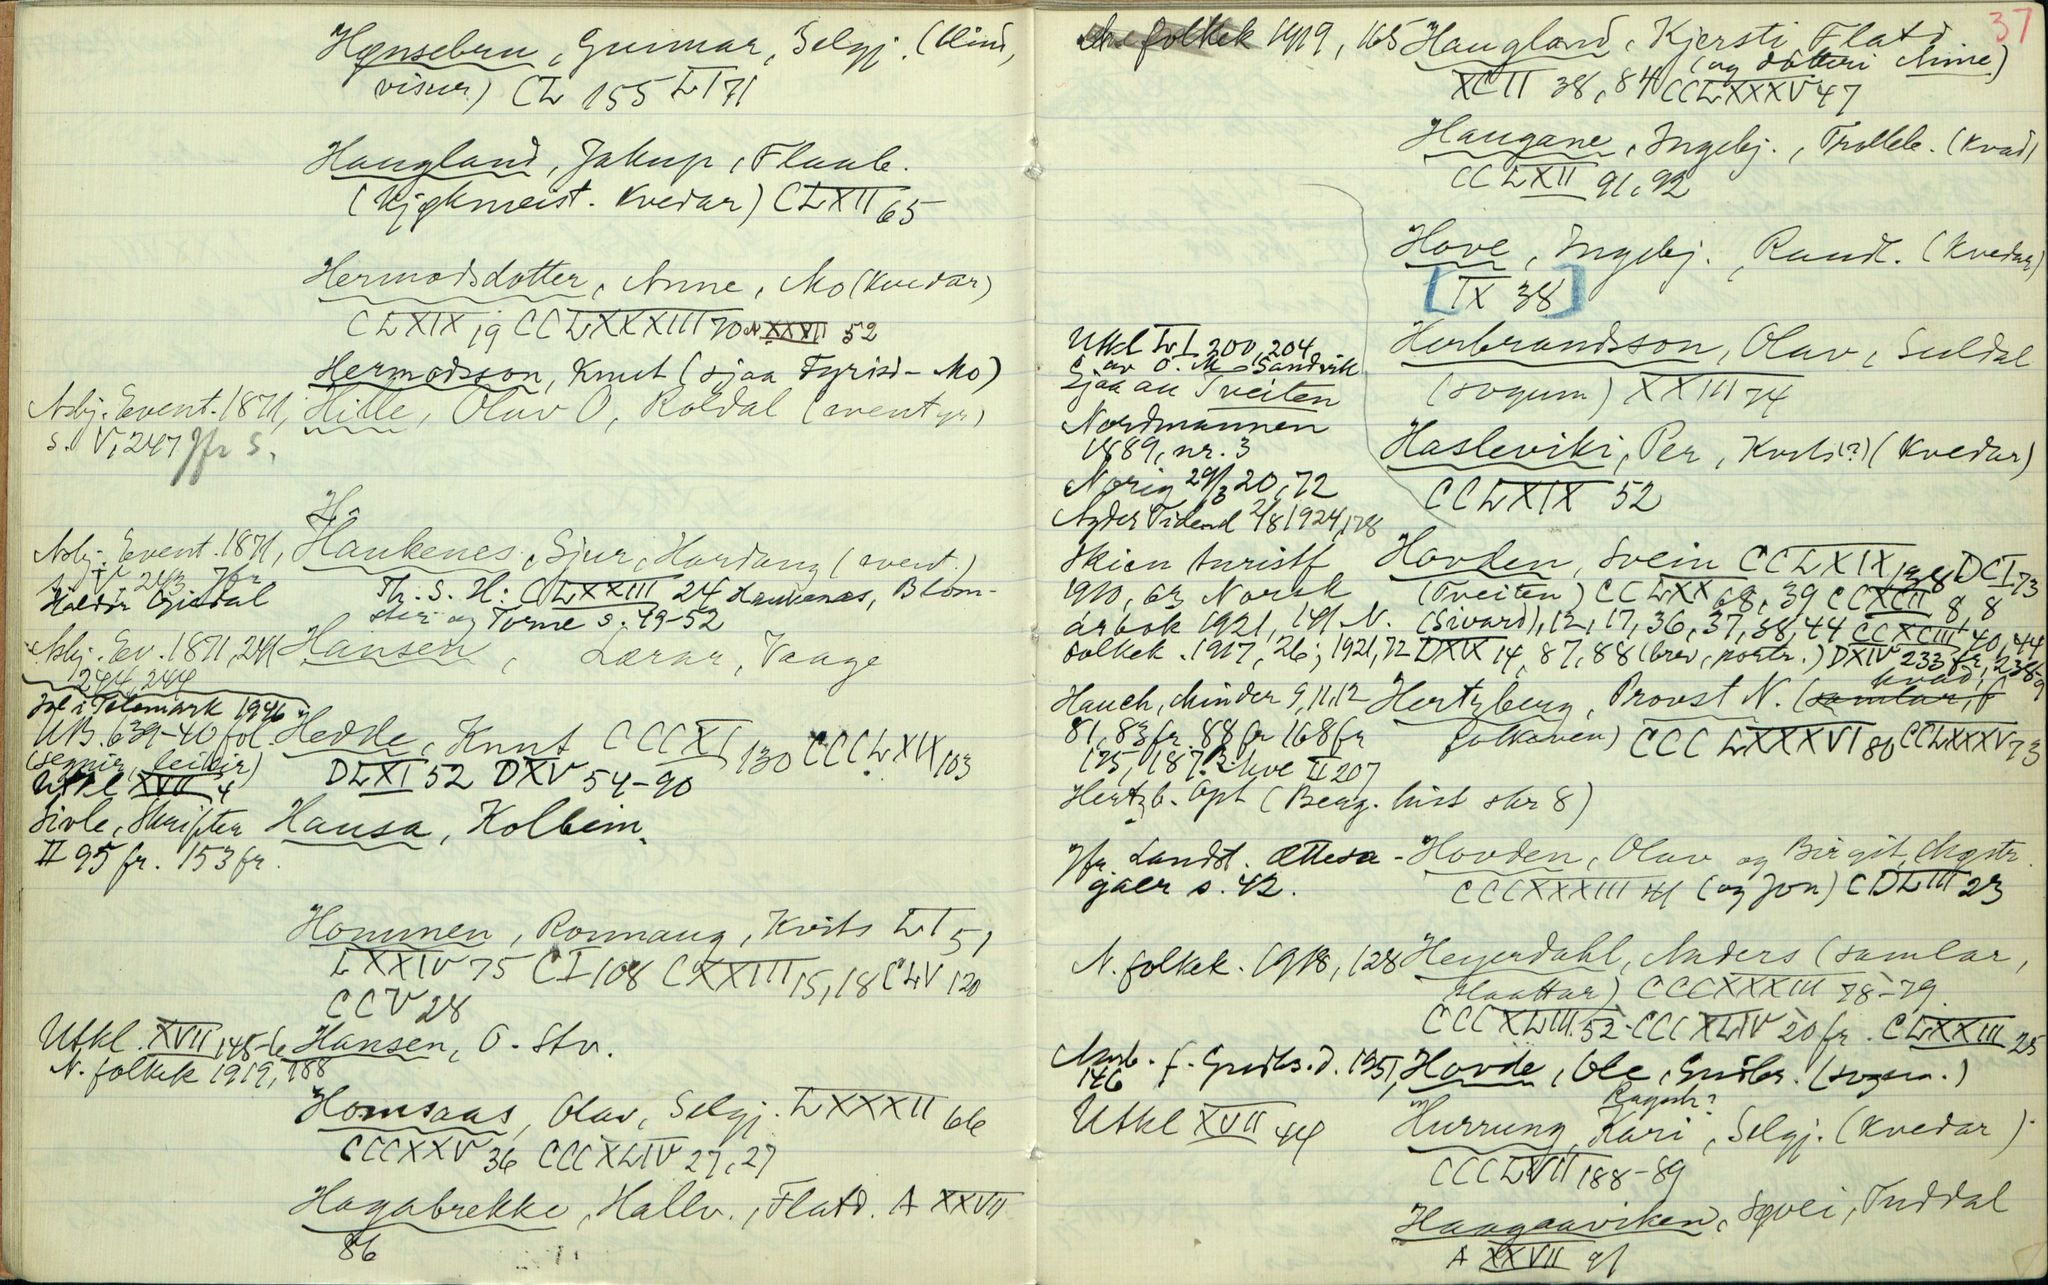 Hønsebru, Gunnar, Selgj. (
viser) CL 155 LI 71
Haugland, Jakup, Flaab.
(kjøkmeist. kvedar) CLXII 65
Hermodsdotter, Anne, Mo (kvedar)
CLXIX 19 CCLXXXIII 70 A XXVII 52
Hermodsson, Knut (sjaa Fyrisd - Mo)
Asbj. Event. 1871, Hille, Olav O, Roldal (eventyr)
s. V, 247 Jfr S.
Asbj. Event. 1871, Haukenes, Sjur, Hardang (event.)
s. V, 243 Jfr
Th. S. H: CLXXIII 24 Haukenes, Blom-
ster og Torne s. 49-52
Asbj. Ev. 1871, 241 Hansen, Lærar, Vaage
244, 244
Jol i Telemark 1946
UB. 639-40 fol Hedde, Knut CCCXI 130 CCCLXIX 103
(segner, leikir) DLXI 52 DXV 54-90
Utkl XVII 4
Sivle, Skrifter Hausa, Kolbein
II 95 fr. 153 fr.
Hommen, Ronnaug, Kvits LI 51
LXXIV 75 CI 108 CXXIII 15, 18 CLV 120
CCV 28
Utkl. XVII 148-6 Hansen, O. Stv.
N. folkek 1919, 188
Homsaas, Olav, Selgj. LXXXII 66
CCCXXV 36 CCCXLIV 27, 27
Hagabrekke, Hallv., Flatd. A XXVII
86
37
folkek 1919, 165 Haugland, Kjersti Flatd
(og dotteri Anne)
XCII 38, 84 CCLXXXV 47
Haugane, Ingebj., Trolleb. (kvad)
CCLXII 91, 92
Hove, Ingebj., Raud. (kvedar)
[IX 38]
Utkl LI 200, 204 Herbrandsson, Olav, Suldal
av O. M. Sandvik (sogum) XXIII 74
Sjaa au Tveiten
Nordmannen Hasleviki, Per, Kvits (?) (kvedar)
1889, nr. 3 CCLXIX 52
Norig 29/3 20, 72
Agder Tidend 2/8 1924, 178
Skien turistf Hovden, Svein CCLXIX 138 DCI 73
1910, 63 Norsk (Tveiten) CCLXX 68, 39 CCXCII 8, 8
årbok 1921, 141 N. (Sivard), 12, 17, 36, 37, 38, 44 CCXCIII 40, 44
folkek. 1917, 26; 1921, 72 DXIX 14, 87, 88 (brev, portr.) DXIV 233 fr, 238-9
Hauch, Minder 9, 11, 12 Hertzberg, Provst N. (samlar, kvad,
81, 83 fr. 88 fr 168 fr folkeven) CCCLXXXVI 80 CCLXXXV 73
175, 187. II 207
Hertzb. Opt (Berg. hist skr 8)
Jfr Landst. Ættesa- Hovden, Olav og Birgit, Mgstr.
gaer s. 42. CCCXXXIII 41 (og Jon) CDLIII 23
N. folkek. 1918, 128 Heyerdahl, Anders (samlar,
slaattar) CCCXXXIII 78-79.
CCCXLIII 52 - CCCXLIV 20 fr. CLXXIII 25
Aarb. f. Gudbr.d. 1951, Hovde, Ole, Gudbr. (sogem.)
146
Ragnh?
Utkl XVII 44 Hurrung, Kari, Selgj. (kvedar)
CCCLVII 188-89
Haagaaviken, Søvei, Tuddal
A XXVII 91